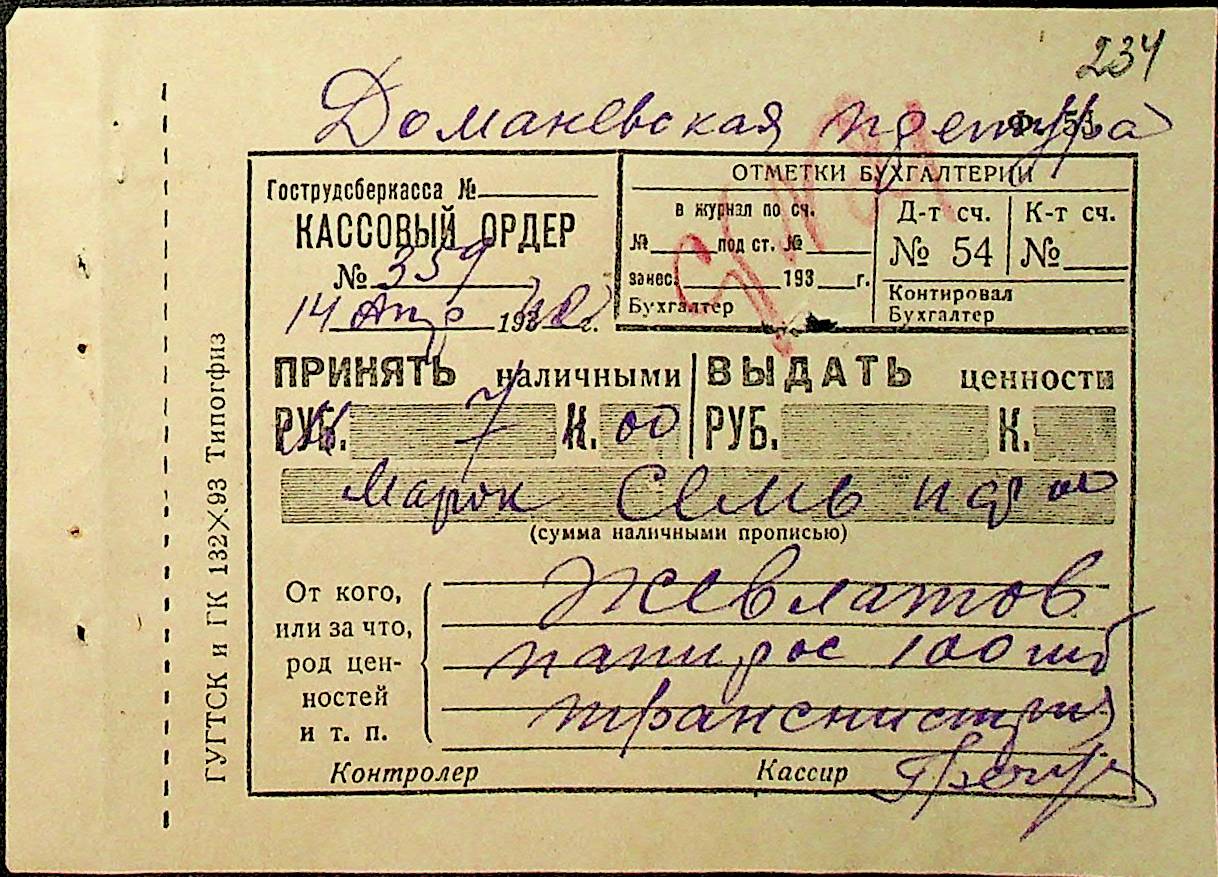 234
Доманевская претура
Ф. 53
Гострудсберкасса №
КАССОВЫЙ ОРДЕР
№ 359
14 Апр 194 г.
ОТМЕТКИ БУХГАЛТЕРИИ
в журнал по сч.
№ под ст. №
занес. 193 г.
Бухгалтер
Д-т сч.
№ 54
К-т сч.
№
Контировал
Бухгалтер
ПРИНЯТЬ наличными
РУБ. 7 К. 00
ВЫДАТЬ ценности
РУБ. К.
Марок Семь 00
(сумма наличными прописью)
От кого,
или за что,
род цен-
ностей
и т. п.
Жевлатов
папирос 100 шт
транснистрия
Контролер
Кассир
ГУГТСК и ГК 132×93 Типогфиз